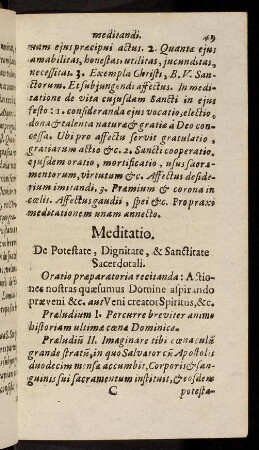 meditandi. 49
nam ejus præcipui actus. 2. Quanta ejus
amabilitas, honestas, utilitas, jucunditas,
necessitas. 3. Exempla Christi, B. V. San-
ctorum. Et subjungendi affectus. In medi-
tatione de vita cujusdam Sancti in ejus
festo: 1. consideranda ejus vocatio, electio,
dona & talenta naturæ & gratiæ à Deo con-
cessa. Ubi pro affectu servit gratulatio,
gratiarum actio &c. 2. Sancti cooperatio,
ejusdem oratio, mortificatio, usus sacra-
mentorum, virtutum &c. Affectus deside-
rium imitandi. 3. Præmium & corona in
cœlis. Affectus gaudii, spei &c. Pro praxi
meditationem unam annecto.
Meditatio.
De Potestate, Dignitate, & Sanctitate
Sacerdotali.
Oratio præparatoria recitanda: Actio-
nes nostras quæsumus Domine aspirando
præveni &c. aut Veni creator Spiritus, &c.
Præludium I. Percurre breviter animo
historiam ultimæ cœnæ Dominicæ.
Præludiũ II. Imaginare tibi cœnaculũ
grande stratũ, in quo Salvator cũ Apostolis
duodecim mensa accumbit, Corporis & san-
guinis sui sacramentum instituit, & eosdem
C potesta-